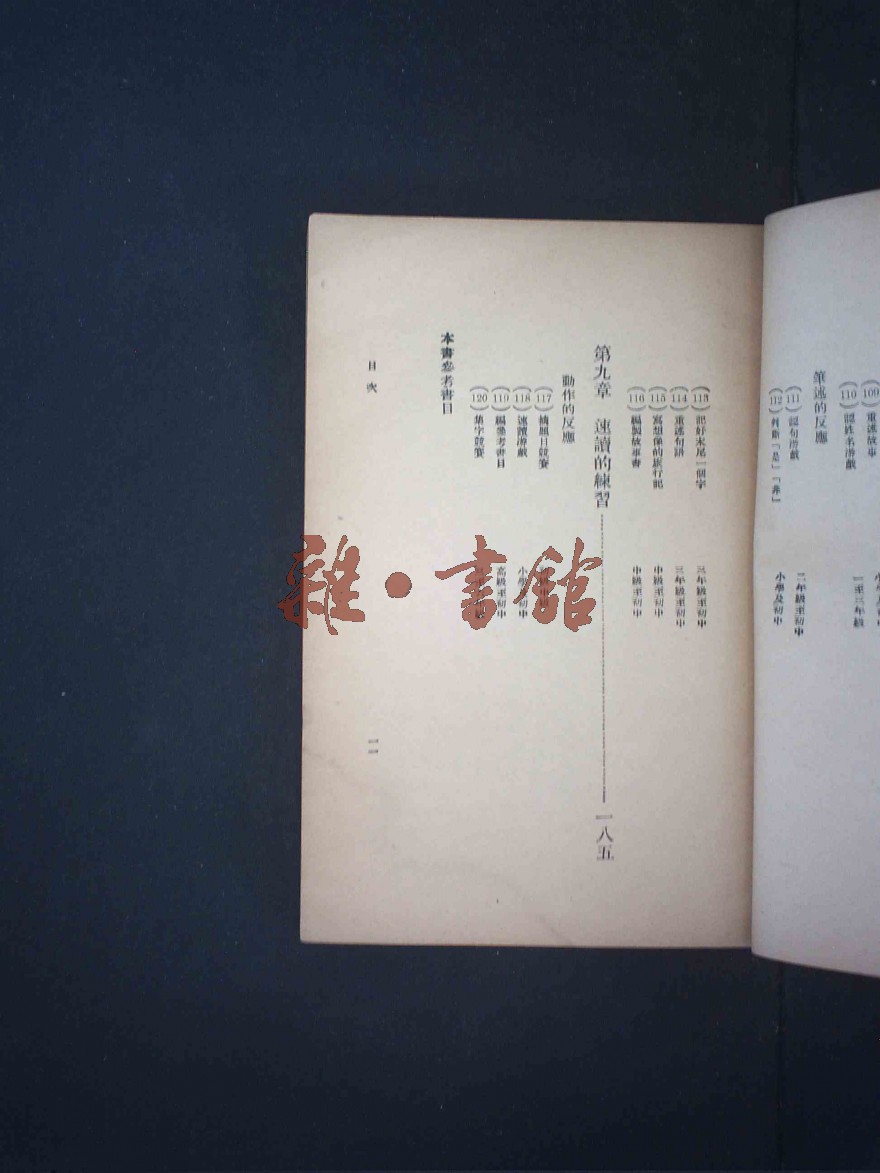 重述故事
(110) 認姓名游戲 一至三年級
筆述的反應
(111) 認句游戲 二年級至初中
(112) 判斷「是」「非」 小學及初中
(113) 記好末尾一個字 三年級至初中
(114) 重述句語 三年級至初中
(115) 寫想像的旅行記 中級至初中
(116) 編製故事書 中級至初中
第九章 速讀的練習 一八五
動作的反應
(117) 摘題目競賽
(118) 速讀游戲
(119) 編參考書目 高級至初中
(120) 集字競賽
本書參考書目
目次
一一
雜·書館